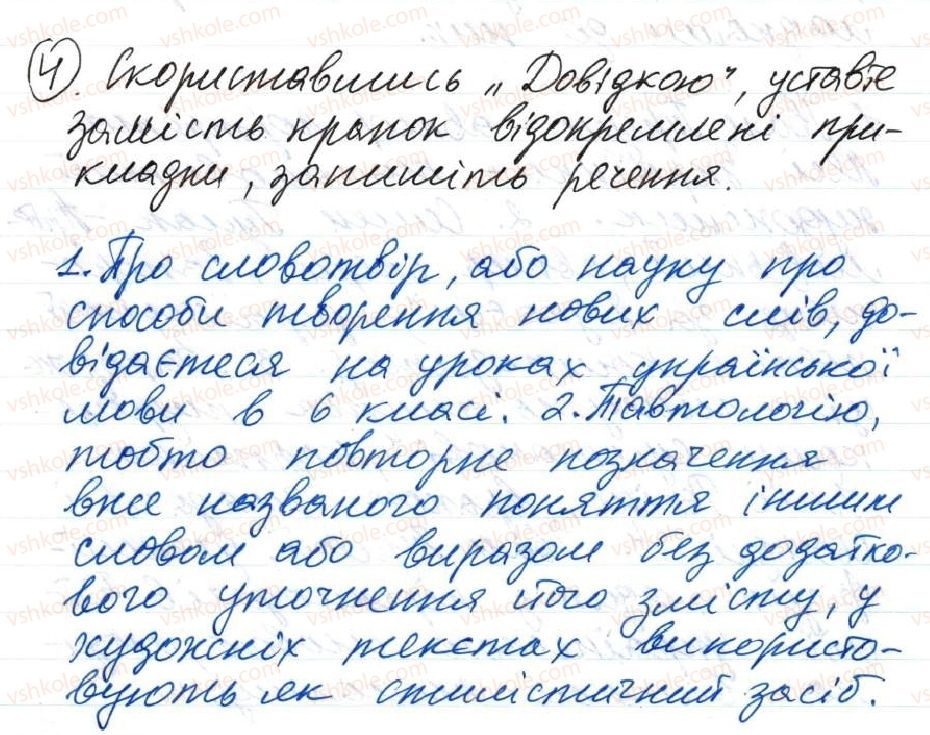 4. Скориставшись „Довідкою", уставте
замість крапок відокремлені при-
кладки, запишіть речення.
1. Про словотвір, або науку про
способи творення нових слів, до-
відаєтеся на уроках української
мови в 6 класі. 2. Тавтологію,
тобто повторне позначення
вже названого поняття іншим
словом або виразом без додатко-
вого уточнення його змісту, у
художніх текстах використо-
вують як стилістичний засіб.